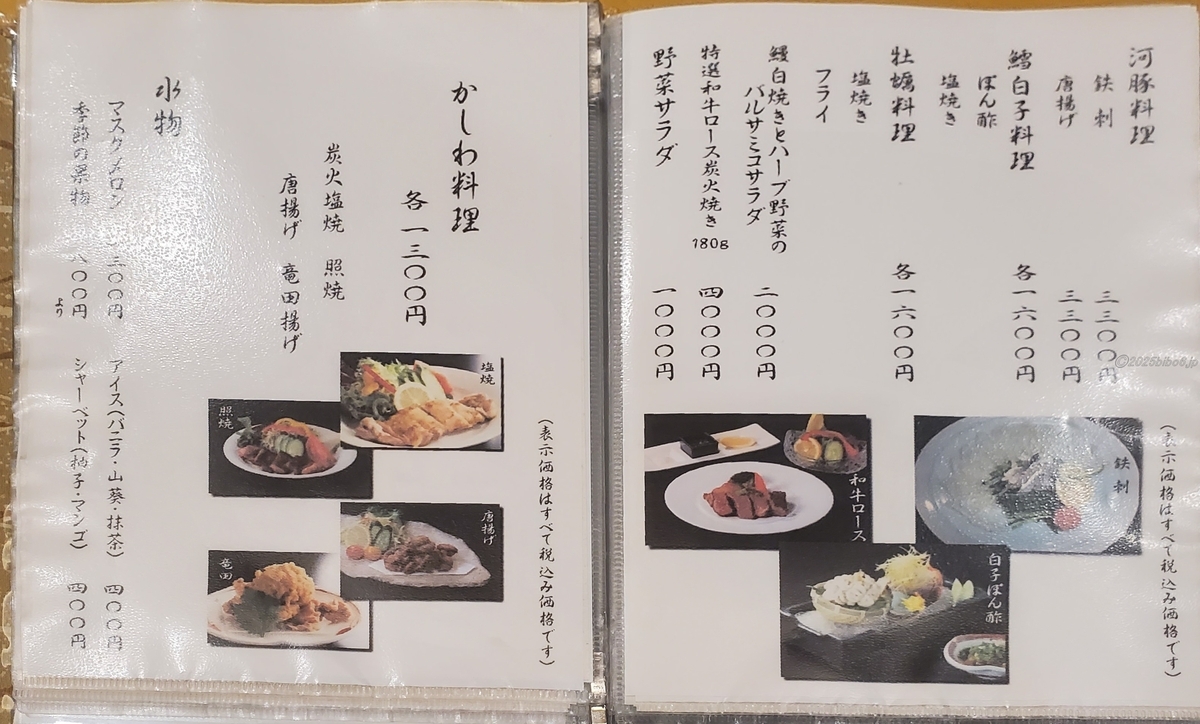 河豚料理
鉄刺 三三〇〇円
唐揚げ 三三〇〇円
鱈白子料理 各一六〇〇円
ぽん酢
塩焼き
牡蠣料理 各一六〇〇円
塩焼き
フライ
鰻白焼きとハーブ野菜の
バルサミコサラダ 二〇〇〇円
特選和牛ロース炭火焼き 180g 四〇〇〇円
野菜サラダ 一〇〇〇円
鉄刺
和牛ロース
白子ぽん酢
(表示価格はすべて税込み価格です)
©2025bibo6.jp
かしわ料理
各一三〇〇円
炭火塩焼 照焼
唐揚げ 竜田揚げ
塩焼
照焼
唐揚げ
竜田
水物
マスクメロン 三〇〇円
季節の果物 八〇〇円より
アイス(バニラ・山葵・抹茶) 四〇〇円
シャーベット(柚子・マンゴ) 四〇〇円
(表示価格はすべて税込み価格です)